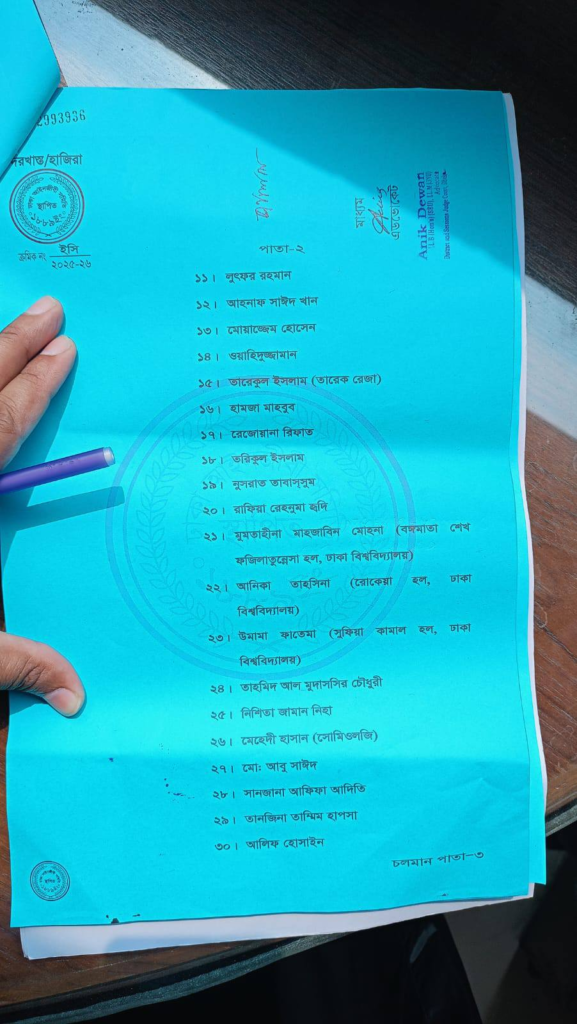 2993936
দরখাস্ত/হাজিরা
ঢাকা আইনজীবী সমিতি
স্থাপিত
১৮৮৯ইং
ক্রমিক নং ইসি
২০২৫-২৬
মাধ্যম
এডভোকেট
Anik Dewan
পাতা-২
১১। লুৎফর রহমান
১২। আহনাফ সাঈদ খান
১৩। মোয়াজ্জেম হোসেন
১৪। ওয়াহিদুজ্জামান
১৫। তারেকুল ইসলাম (তারেক রেজা)
১৬। হামজা মাহবুব
১৭। রেজোয়ানা রিফাত
১৮। তরিকুল ইসলাম
১৯। নুসরাত তাবাস্সুম
২০। রাফিয়া রেহনুমা হৃদি
২১। মুমতাহীনা মাহজাবিন মোহনা (বঙ্গমাতা শেখ
ফজিলাতুন্নেসা হল, ঢাকা বিশ্ববিদ্যালয়)
২২। আনিকা তাহসিনা (রোকেয়া হল, ঢাকা
বিশ্ববিদ্যালয়)
২৩। উমামা ফাতেমা (সুফিয়া কামাল হল, ঢাকা
বিশ্ববিদ্যালয়)
২৪। তাহমিদ আল মুদাসসির চৌধুরী
২৫। নিশিতা জামান নিহা
২৬। মেহেদী হাসান (সোমিওলজি)
২৭। মো: আবু সাঈদ
২৮। সানজানা আফিফা আদিতি
২৯। তানজিনা তাম্মিম হাপসা
৩০। আলিফ হোসাইন
চলমান পাতা-৩